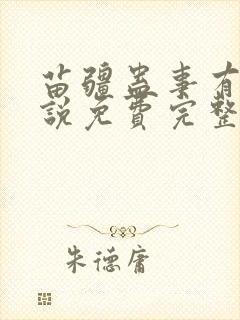 苗疆蛊事有
説免費完整
朱德庸